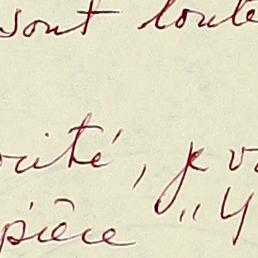 sont toute
orité, je va
pièce "Y